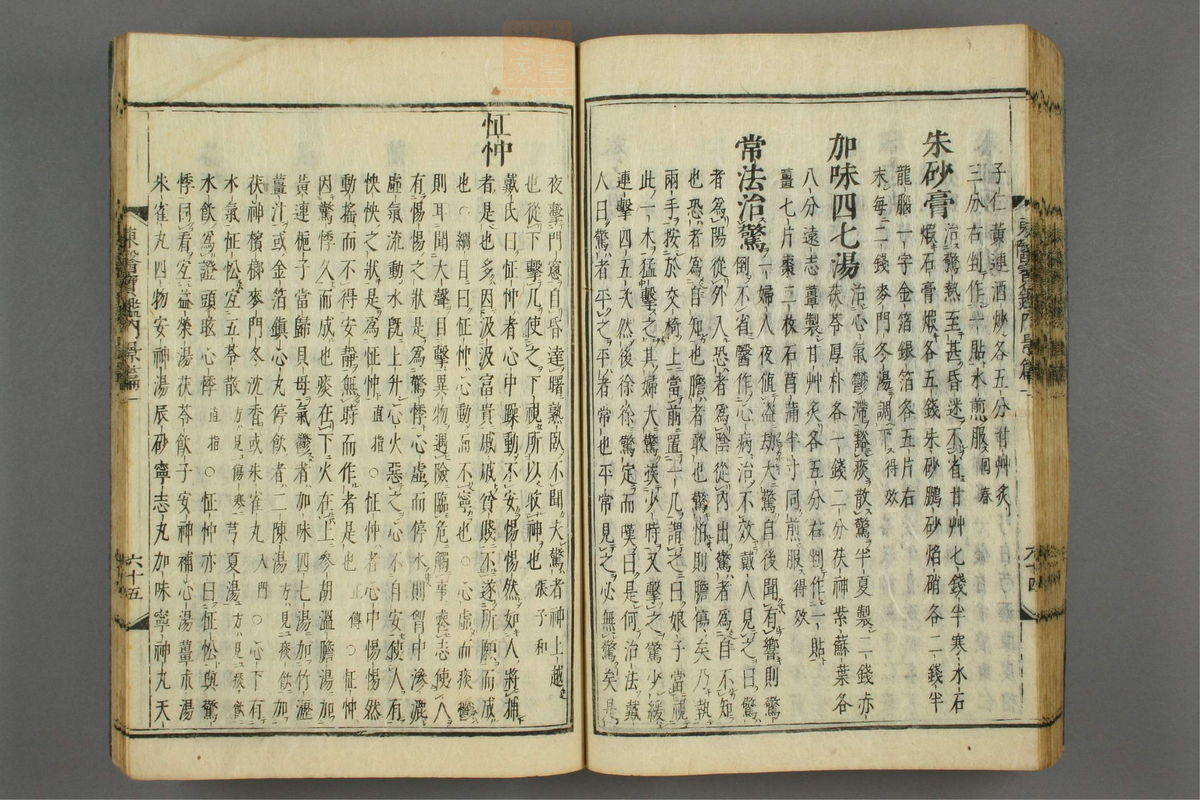 子仁黃連酒炒各五分甘艸炙
三分右剉作一貼水煎服 回春
朱砂膏 治驚熱至甚昏迷不省甘艸七錢半寒水石
煆石膏煆各五錢朱砂鵬砂焰硝各二錢半
龍腦一字金箔銀箔各五片右
末每二錢麥門冬湯調下 得效
加味四七湯 治心氣鬱滯豁痰散驚半夏製二錢赤
茯苓厚朴各一錢二分茯神紫蘇葉各
八分遠志薑製甘艸炙各五分右剉作一貼
薑七片棗二枚石菖蒲半寸同煎服 得效
常法治驚 一婦人夜値盜劫大驚自後聞有響則驚
倒不省醫作心病治不效戴人見之曰驚
者爲陽從外入恐者爲陰從內出驚者爲自不知
也恐者爲自知也膽者敢也驚怕則膽傷矣乃執
兩手按於交椅上當前置一几謂之曰娘子當視
此一木猛擊之其婦大驚挨少時又擊之驚少緩
連擊四五次然後徐徐驚定而嘆曰是何治法戴
人曰驚者平之平者常也平常見之必無驚矣是
東醫寶鑑內景篇一
六十四
夜擊門窻自昏達曙熟臥不聞夫驚者神上越
也從下擊几使之下視所以收神也 張子和
怔忡 戴氏曰怔忡者心中躁動不安惕惕然如人將捕
者是也多因汲汲富貴戚戚貧賤不遂所願而成
也○綱目曰怔忡心動而不寧也○心虛而痰鬱
則耳聞大聲目擊異物遇險臨危觸事喪志使人
有惕惕之狀是爲驚悸心虛而停水則胷中滲漉
虛氣流動水旣上升心火惡之心不自安使人有
怏怏之狀是爲怔忡 直指 ○怔忡者心中惕惕然
動搖而不得安靜無時而作者是也 正傳 ○怔忡
因驚悸久而成也痰在下火在上參胡溫膽湯加
黃連梔子當歸貝母氣鬱者加味四七湯加竹瀝
薑汁或金箔鎭心丸停飮者二陳湯 方見痰飮 加
茯神檳榔麥門冬沈香或朱雀丸 入門 ○心下有
水氣怔忪宜五苓散 方見傷寒 芎夏湯 方見痰飮
水飮爲證頭眩心悸 直指 ○怔忡亦曰怔忪與驚
悸同看宜益榮湯茯苓飮子安神補心湯薑朮湯
朱雀丸四物安神湯辰砂寧志丸加味寧神丸天
東醫寶鑑內景篇一
六十五